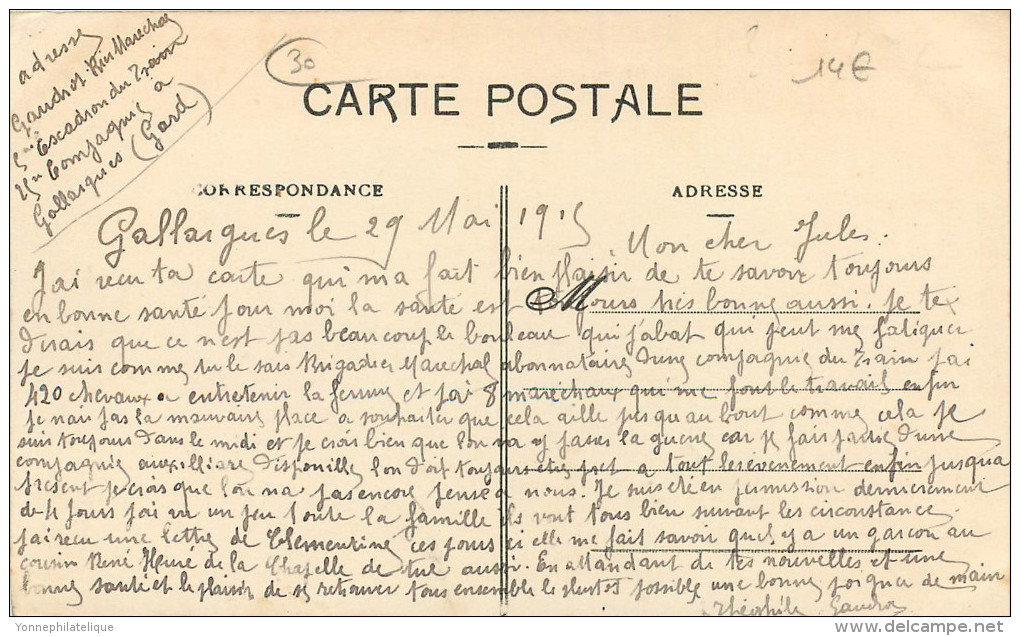 adresse
Gaudron Bier Marechal
5me Escadron du Train
25me Compagnie a
Gallargues (Gard)
30
14€
CARTE POSTALE
CORRESPONDANCE
ADRESSE
Gallargues le 29 Mai 1915
Mon cher Jules.
J'ai recu ta carte qui ma fait bien plaisir de te savoir toujours
en bonne santé pour moi la santé est toujours très bonne aussi. je te
dirais que ce n'est pas beaucoup le bouleau qui j'abat qui peut me fatiguer
je suis comme tu le sais Brigadier Marechal abonnataire d'une compagnie du Train j'ai
420 chevaux a entretenir la ferrure et j'ai 8 maréchaux qui me font le travail enfin
je nais pas la mauvaise place a souhaiter que cela aille jusqu'au bout comme cela je
suis toujours dans le midi et je crois bien que l'on na y faire la guerre car je fais partie d'une
compagnie auxilliaire disponible l'on doit toujours etre pret a tout les évenement enfin jusqua
présent je crois que l'on na pas encore pensé a nous. Je suis été en permission dernierement
de 4 jours j'ai vu un peu toute la famille ils vont tous bien suivant les circonstance
j'ai recu une lettre de Clementine ces jours ci elle me fait savoir quel y a un garçon au
cousin René Hervé de la Chapelle de tué aussi. En attendant de tes nouvelles et une
bonne santé et le plaisir de se retrouver tous ensemble le plus tot possible une bonne poignée de main
Théophile Gaudron
Yonnephilatelique
delcampe.net